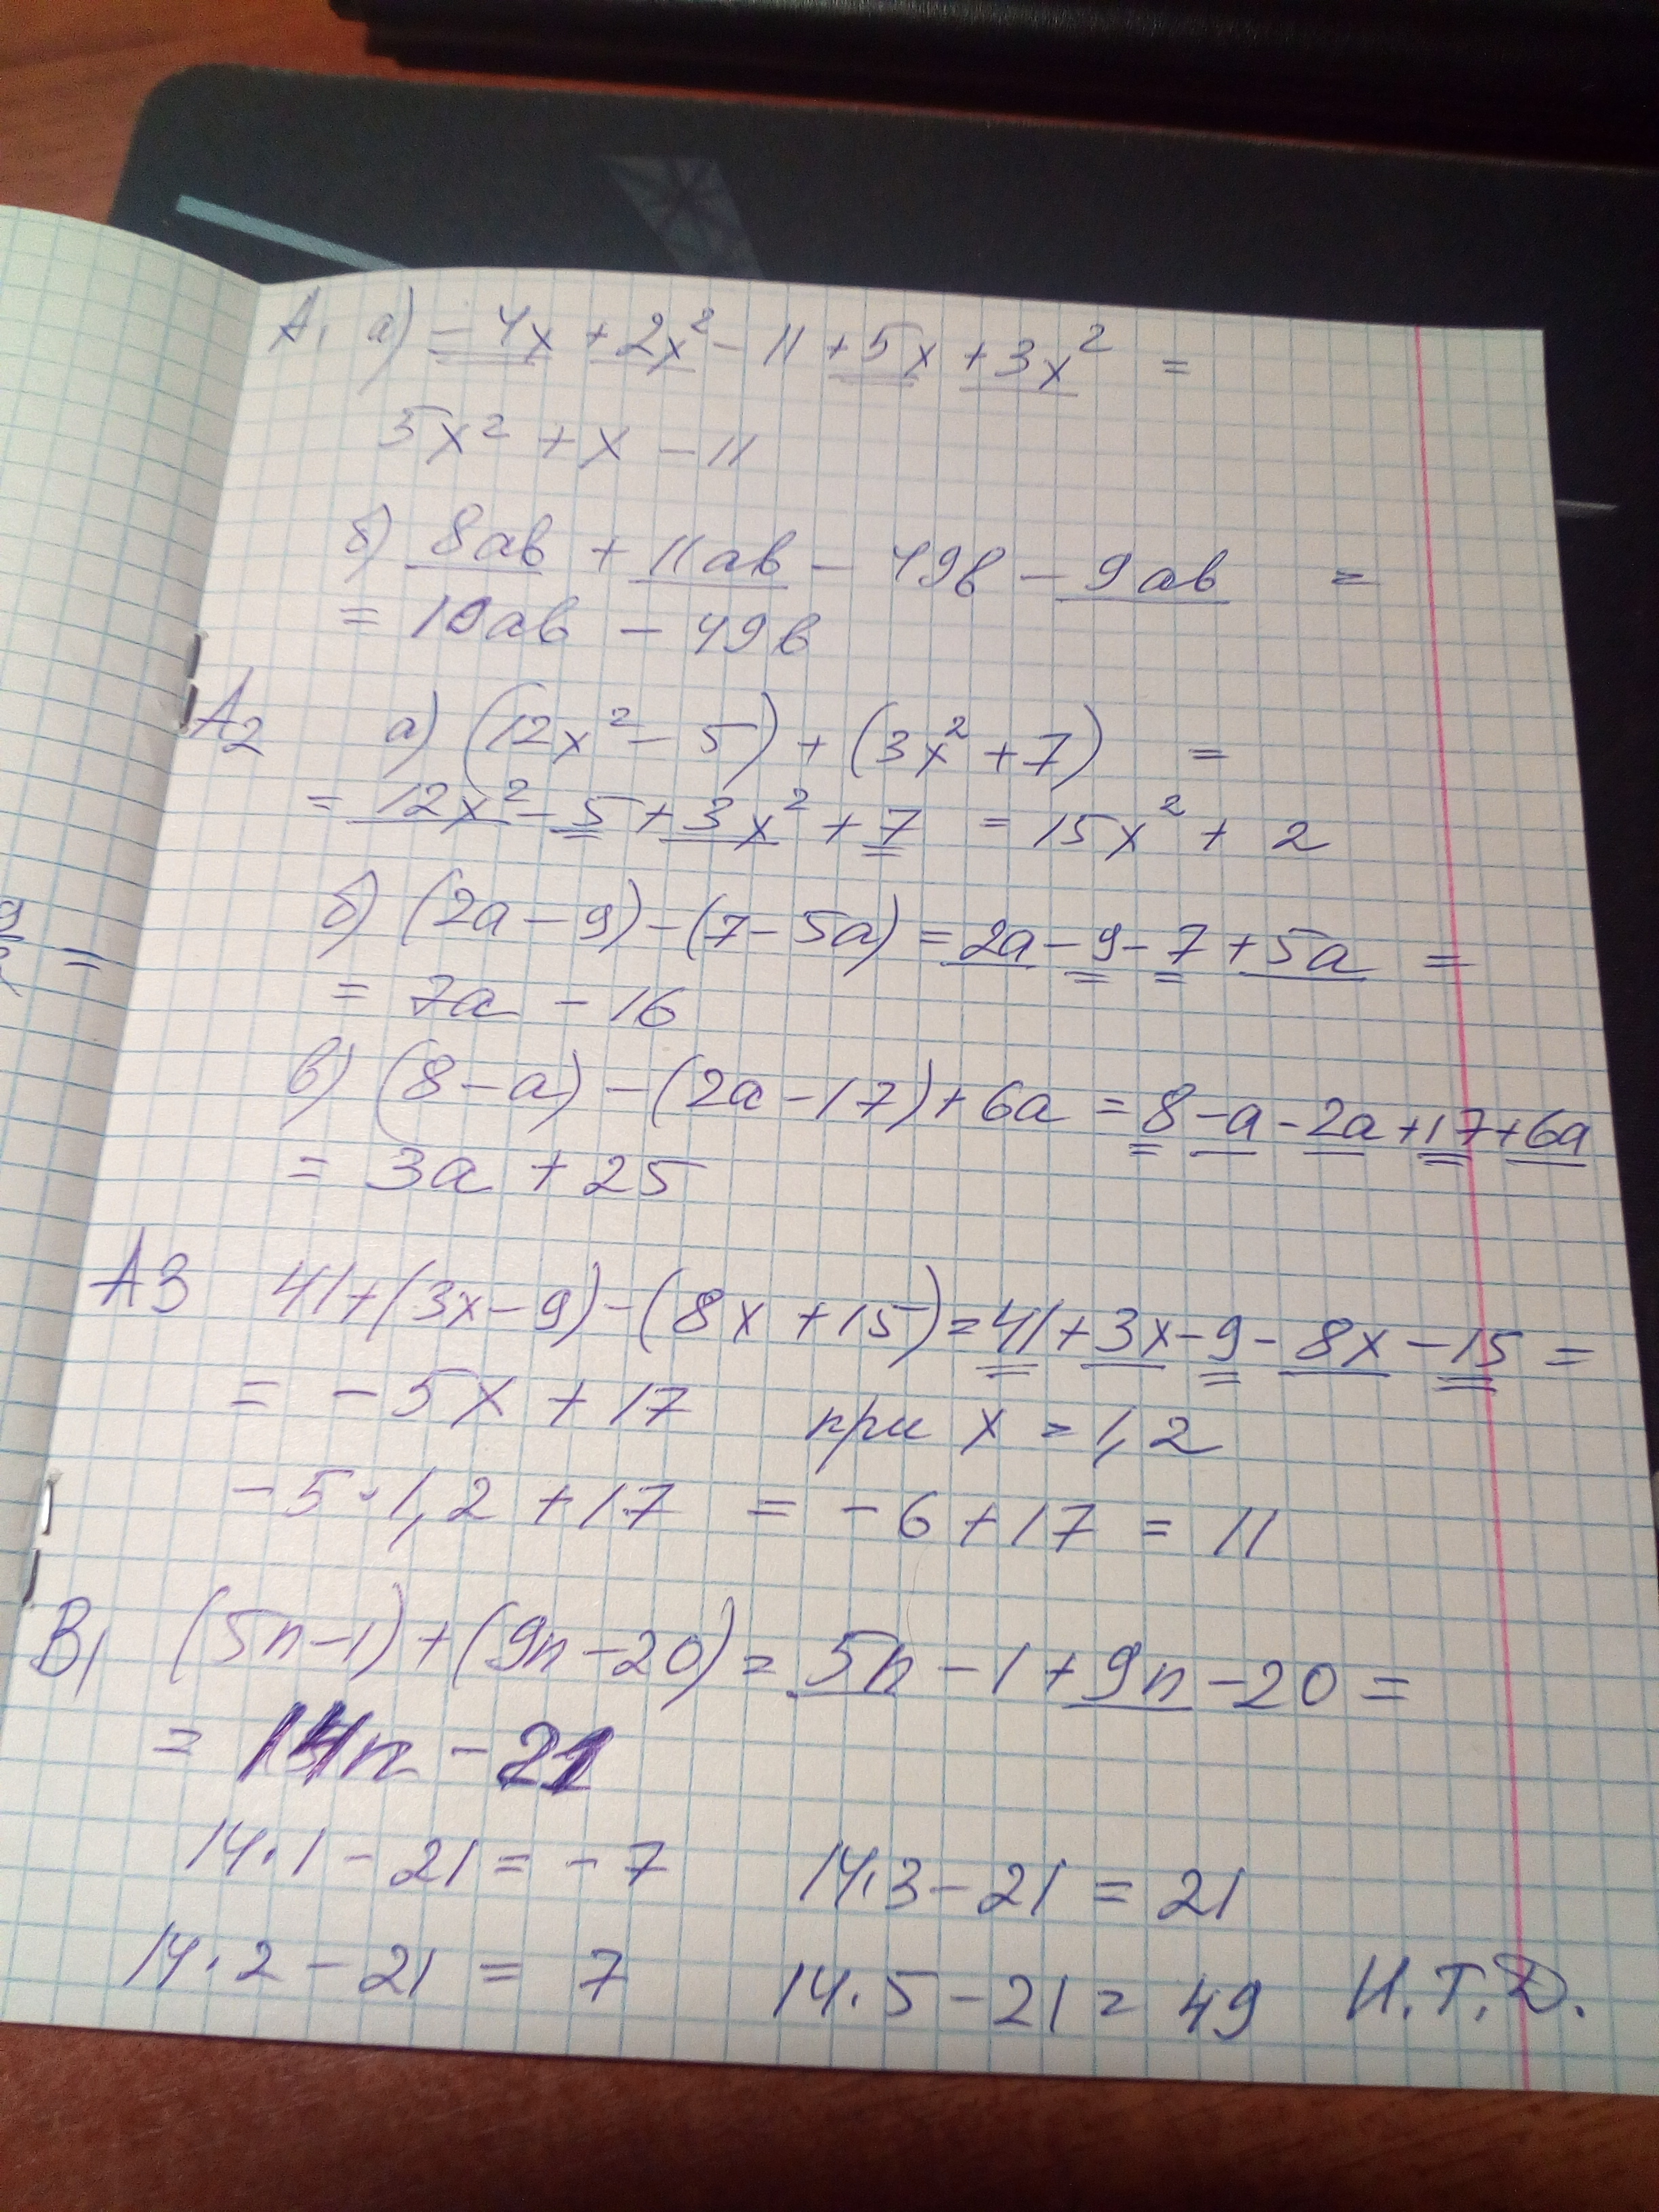 А1 а) -4x + 2x² - 11 + 5x + 3x² =
5x² + x - 11
б) 8ab + 11ab - 49b - 9ab =
= 10ab - 49b
А2 а) (12x² - 5) + (3x² + 7) =
= 12x² - 5 + 3x² + 7 = 15x² + 2
б) (2a - 9) - (7 - 5a) = 2a - 9 - 7 + 5a =
= 7a - 16
в) (8 - a) - (2a - 17) + 6a = 8 - a - 2a + 17 + 6a
= 3a + 25
А3 41 + (3x - 9) - (8x + 15) = 41 + 3x - 9 - 8x - 15 =
= -5x + 17 при x = 1,2
-5 · 1,2 + 17 = -6 + 17 = 11
В1 (5n - 1) + (9n - 20) = 5n - 1 + 9n - 20 =
= 14n - 21
14 · 1 - 21 = -7 14 · 3 - 21 = 21
14 · 2 - 21 = 7 14 · 5 - 21 = 49 И.Т.Д.